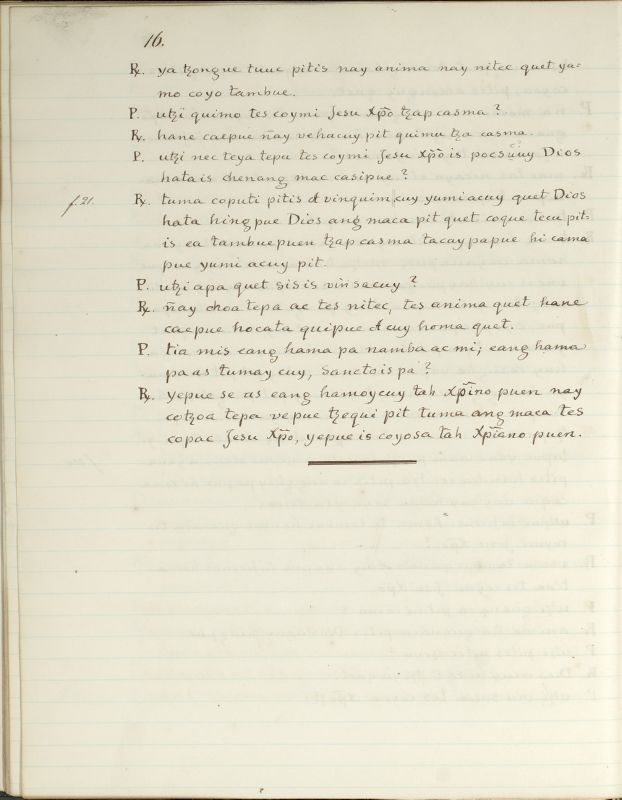 16.
℞. ya tzongue tuuc pitis nay anima nay nitec quet ya=
mo coyo tambue.
P. utzi quimo tes coymi Jesu Xp̃o tzap casma?
℞. hane caepue ñay vehacuy pit quimu tza casma.
P. utzi nec teya tepu tes coymi Jesu Xp̃o is pocsuuy Dios
hata is chenang mac casipue?
f. 21. ℞. tuma coputi pitis et vinquim cuy yumi acuy quet Dios
hata hing pue Dios ang maca pit quet coque tecu pit=
is ea tambuepuen tzap casma tacay papue hi cama
pue yumi acuy pit.
P. utzi apa quet sis is viñ sacuy?
℞. ñay choa tepa ac tes nitec, tes anima quet hane
caepue hocata quipue et cuy homa quet.
P. tia mis eang hama pa namba ac mi; eang hama
pa as tumay cuy, Sancto is pa?
℞. yepue se as eang hamoycuy tah Xp̃ino puen nay
cotzoa tepa vepue tzequi pit tuma ang maca tes
copac Jesu Xp̃o, yepue is coyosa tah Xp̃iano puen.